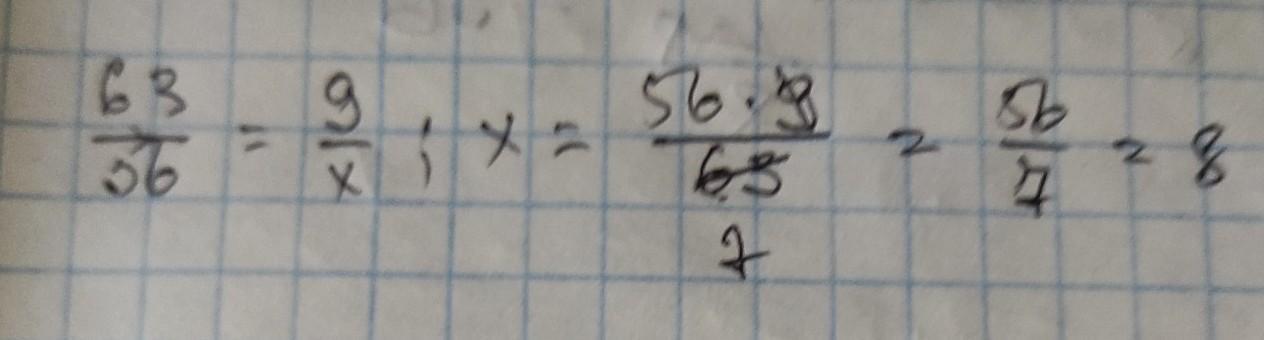 63/56 = 9/x ; x = 56·9/63 = 56/7 = 8
7